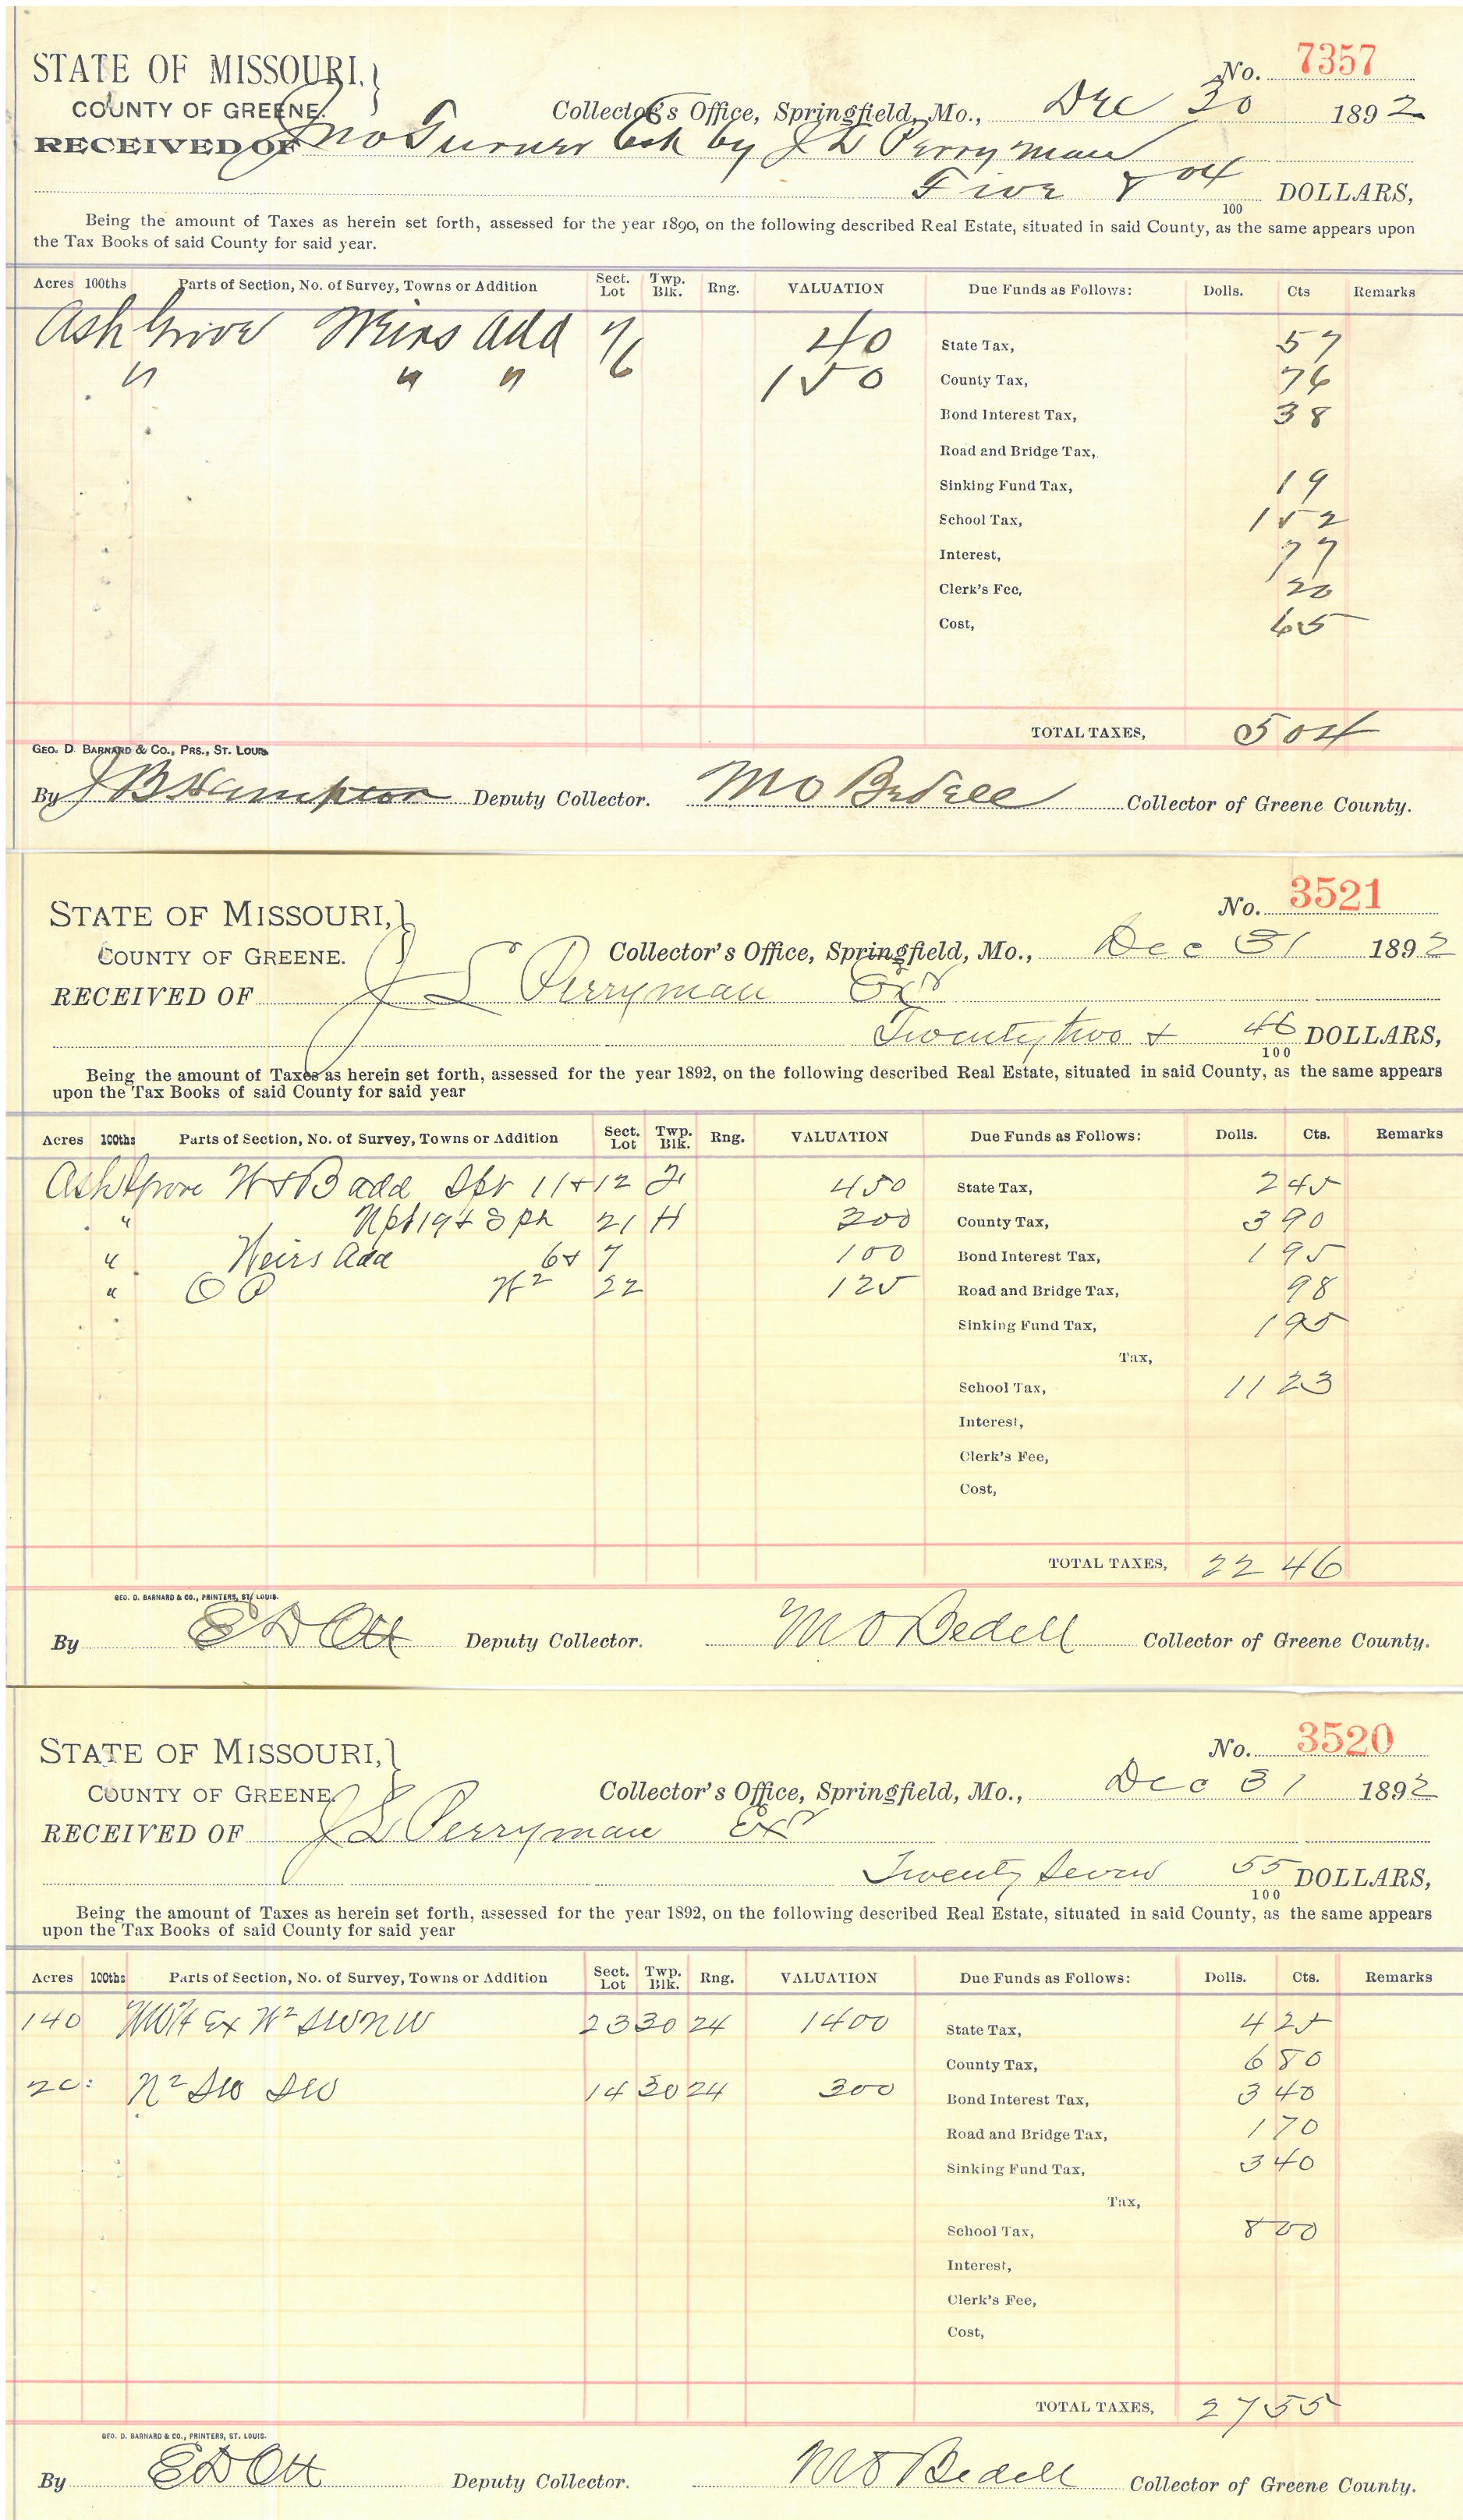 STATE OF MISSOURI,} No. 7357
COUNTY OF GREENE. Collector's Office, Springfield, Mo., Dec 30 1892
RECEIVED OF Jno Turner Est by J L Perryman
Five & 04/100 DOLLARS,
Being the amount of Taxes as herein set forth, assessed for the year 1890, on the following described Real Estate, situated in said County, as the same appears upon
the Tax Books of said County for said year.
Acres 100ths Parts of Section, No. of Survey, Towns or Addition Sect. Lot Twp. Blk. Rng. VALUATION Due Funds as Follows: Dolls. Cts Remarks
Ash Grove Weirs Add 7 40 State Tax, 57
" " " 6 150 County Tax, 76
Bond Interest Tax, 38
Road and Bridge Tax,
Sinking Fund Tax, 19
School Tax, 1 52
Interest, 77
Clerk's Fee, 20
Cost, 65
TOTAL TAXES, 5 04
GEO. D. BARNARD & CO., PRS., ST. LOUIS
By J B Hampton Deputy Collector. M O Bedell Collector of Greene County.
STATE OF MISSOURI,} No. 3521
COUNTY OF GREENE. Collector's Office, Springfield, Mo., Dec 31 1892
RECEIVED OF J L Perryman Exr
Twenty two & 46/100 DOLLARS,
Being the amount of Taxes as herein set forth, assessed for the year 1892, on the following described Real Estate, situated in said County, as the same appears
upon the Tax Books of said County for said year
Acres 100ths Parts of Section, No. of Survey, Towns or Addition Sect. Lot Twp. Blk. Rng. VALUATION Due Funds as Follows: Dolls. Cts. Remarks
Ash Grove W & B add 11 & 12 450 State Tax, 2 45
" Npt 19 & 21 H 300 County Tax, 3 90
" Weirs Add 6 & 7 100 Bond Interest Tax, 1 95
" O P 22 125 Road and Bridge Tax, 98
Sinking Fund Tax, 1 95
Tax,
School Tax, 11 23
Interest,
Clerk's Fee,
Cost,
TOTAL TAXES, 22 46
GEO. D. BARNARD & CO., PRINTERS, ST. LOUIS.
By E D Ott Deputy Collector. M O Bedell Collector of Greene County.
STATE OF MISSOURI,} No. 3520
COUNTY OF GREENE. Collector's Office, Springfield, Mo., Dec 31 1892
RECEIVED OF J L Perryman Exr
Twenty Seven 55/100 DOLLARS,
Being the amount of Taxes as herein set forth, assessed for the year 1892, on the following described Real Estate, situated in said County, as the same appears
upon the Tax Books of said County for said year
Acres 100ths Parts of Section, No. of Survey, Towns or Addition Sect. Lot Twp. Blk. Rng. VALUATION Due Funds as Follows: Dolls. Cts. Remarks
140 NW¼ Ex W² SW NW 23 30 24 1400 State Tax, 4 25
County Tax, 6 80
20 N² SW SW 14 30 24 300 Bond Interest Tax, 3 40
Road and Bridge Tax, 1 70
Sinking Fund Tax, 3 40
Tax,
School Tax, 8 00
Interest,
Clerk's Fee,
Cost,
TOTAL TAXES, 27 55
GEO. D. BARNARD & CO., PRINTERS, ST. LOUIS.
By E D Ott Deputy Collector. M O Bedell Collector of Greene County.